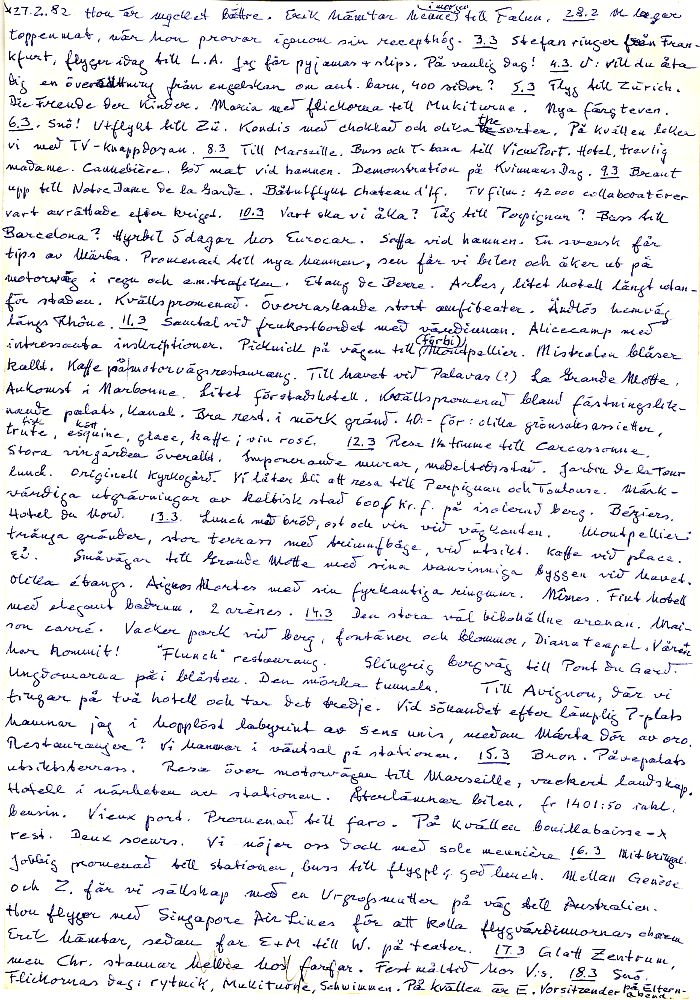 27.2.82 Hon är mycket bättre. Erik hämtar henne i morgon till Falun. 28.2 M lagar
toppenmat, när hon provar igenom sin recepthög. 3.3 Stefan ringer från Fran-
kfurt, flyger idag till L.A. Jag får pyjamas + slips. På vanlig dag! 4.3. V: vill du åta
dig en översättning från engelskan om aut. barn, 400 sidor? 5.3 Flyg till Zürich.
Die Freude der Kinder. Maria med flickorna till Mukiturne. Nya färgteven.
6.3. Snö! Utflykt till Zü. Kondis med choklad och olika the sorter. På kvällen leker
vi med TV-knappdosan. 8.3 Till Marseille. Buss och T-bana till Vieux Port. Hotel, trevlig
madame. Cannebière. God mat vid hamnen. Demonstration på Kvinnans Dag. 9.3 Brant
upp till Notre Dame de la Garde. Båtutflykt Chateau d'If. TV film: 42000 collaboratörer
vart avrättade efter kriget. 10.3 Vart ska vi åka? Tåg till Perpignan? Buss till
Barcelona? Hyrbil 5 dagar hos Eurocar. Soffa vid hamnen. En svensk får
tips av Märta. Promenad till nya hamnen, sen får vi bilen och åker ut på
motorväg i regn och em.trafiken. Etang de Berre. Arles, litet hotell långt utan-
för staden. Kvällspromenad. Överraskande stort amfiteater. Ändlös hemväg
längs Rhône. 11.3 Samtal vid frukostbordet med värdinnan. Alicecamp med
intressanta inskriptioner. Picknick på vägen till (förbi) Montpellier. Mistralen blåser
kallt. Kaffe på motorvägsrestaurang. Till havet vid Palavas (?) La Grande Motte.
Ankomst i Narbonne. Litet förstadshotell. Kvällspromenad bland fästningslik-
nande palats, kanal. Bra rest. i mörk gränd. 40:- för: olika grönsaksassietter,
fisk kött
trute, esquine, glace, kaffe; vin rosé. 12.3 Resa 1½ timme till Carcassonne.
Stora vingårdar överallt. Imponerande murar, medeltidsstad. Jardin de la Tour
lunch. Originell Kyrkogård. Vi låter bli att resa till Perpignan och Toulouse. Märk-
värdiga utgrävningar av keltisk stad 600 f Kr.f. på isolerad berg. Béziers.
Hotel du Nord. 13.3. Lunch med bröd, ost och vin vid vägkanten. Montpellier:
trånga gränder, stor terrass med triumfbåge, vid utsikt. Kaffe vid place.
Ei. Småvägar till Grande Motte med sina vansinniga byggen vid havet.
Olika étangs. Aigues Mortes med sin fyrkantiga ringmur. Nîmes. Fint hotell
med elegant badrum. 2 arènes. 14.3 Den stora väl bibehållne arenan. Mai-
son carré. Vacker park vid berg, fontäner och blommor, Dianatempel. Våren
har kommit! "Flunch" restaurang. Slingrig bergväg till Pont du Gard.
Ungdomarna på i blåsten. Den mörka tunneln. Till Avignon, där vi
tingar på två hotell och tar det tredje. Vid sökandet efter lämplig P-plats
hamnar jag i hopplöst labyrint av sens unis, medan Märta dör av oro.
Restauranger? Vi hamnar i väntsal på stationen. 15.3 Bron. Påvepalats
utsiktsterrass. Resa över motorvägen till Marseille, vackert landskap.
Hotell i närheten av stationen. Återlämnar bilen. fr 1401:50 inkl.
bensin. Vieux port. Promenad till faro. På kvällen bouillabaisse-
rest. Deux soeurs. Vi nöjer oss dock med sole meunière 16.3 Mistringel.
Jobbig promenad till stationen, buss till flygpl, god lunch. Mellan Genève
och Z. får vi sällskap med en Urgrossmutter på väg till Australien.
Hon flyger med Singapore Air Lines för att kolla flygvärdinnornas charm
Erik hämtar, sedan far E+M till W. på teater. 17.3 Glatt Zentrum,
men Chr. stannar hellre hos farfar. Fest måltid hos V:s. 18.3 Snö.
Flickornas dag: rytmik, Mukiturne, Schwimmen. På kvällen är E. Vorsitzender på Eltern-
abend.